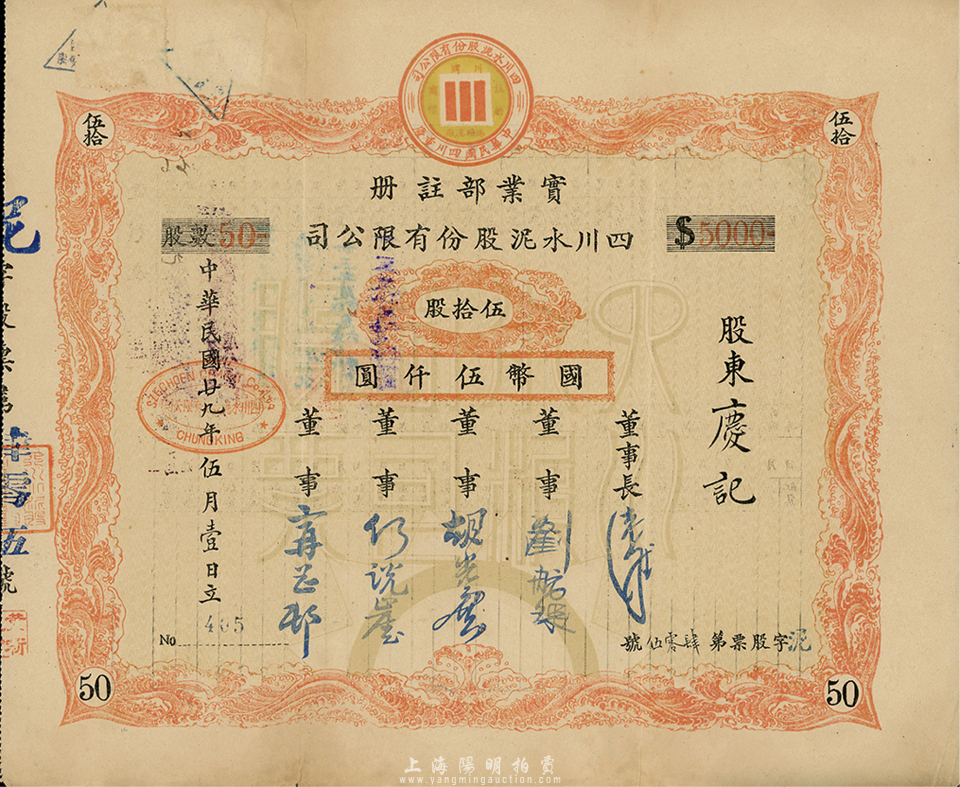 四川水泥股份有限公司
中華民國四川重慶
伍拾
伍拾
實業部註册
股數50
四川水泥股份有限公司
$5000
伍拾股
國幣伍仟圓
股東慶記
董事長
董事 劉航琛
董事 胡光麃
董事 何說巖
董事 甯芷邨
中華民國廿九年伍月壹日立
CHUNGKING
No 405
泥字股票第肆零伍號
泥字股票第肆零伍號
50
50
上海陽明拍賣
www.yangmingauction.com